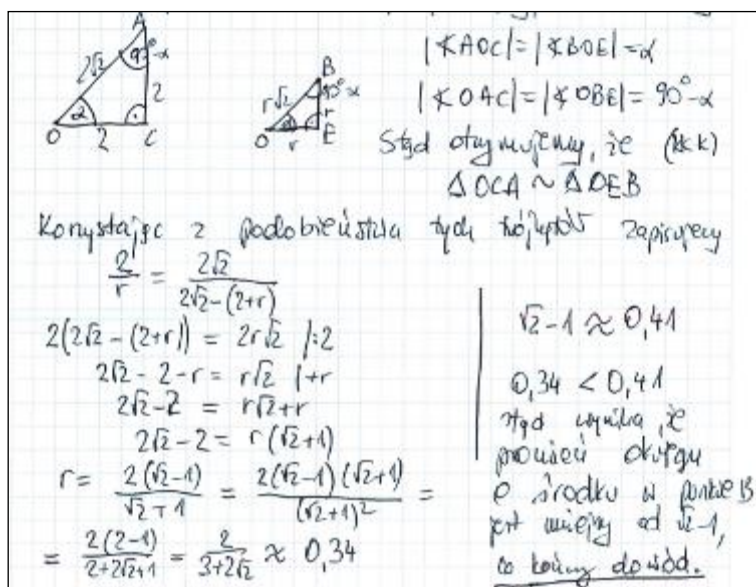 A
2√2
90°-α
2
α
O
2
C
B
r√2
90°-α
r
α
O
r
E
|∢AOC|=|∢BOE|=α
|∢OAC|=|∢OBE|= 90°-α
Stąd otrzymujemy, że (kkk)
ΔOCA ~ ΔOEB
Korzystając z podobieństwa tych trójkątów zapisujemy
2/r = 2√2/(2√2-(2+r))
2(2√2-(2+r)) = 2r√2 /:2
2√2-2-r = r√2 /+r
2√2-2 = r√2+r
2√2-2 = r(√2+1)
r= 2(√2-1)/(√2+1) = 2(√2-1)(√2+1)/(√2+1)² =
= 2(2-1)/(2+2√2+1) = 2/(3+2√2) ≈ 0,34
√2-1 ≈ 0,41
0,34 < 0,41
stąd wynika, że
promień okręgu
o środku w punkcie B
jest mniejszy od √2-1,
co kończy dowód.